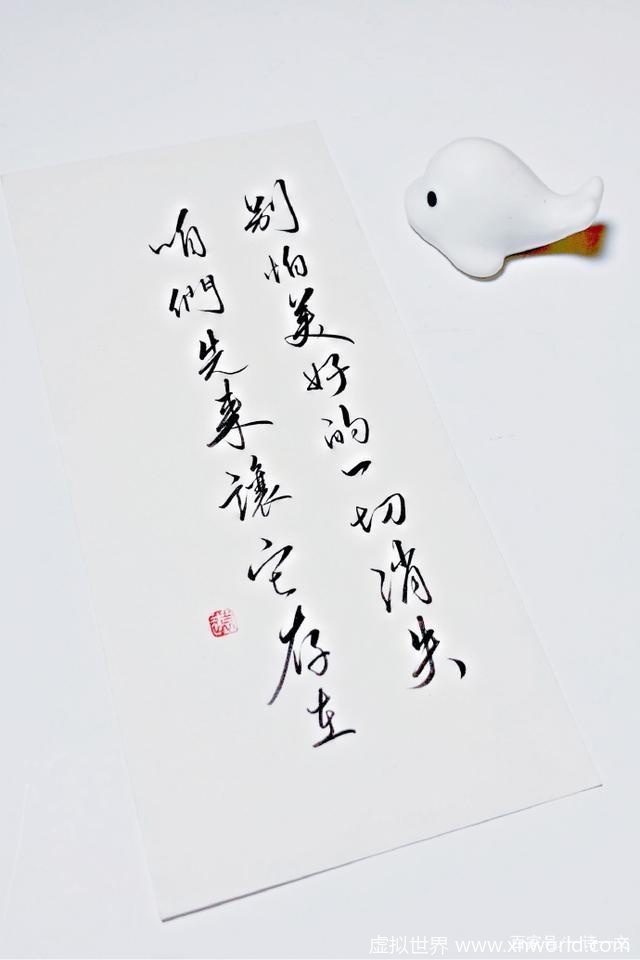 别怕美好的一切消失
咱們先来讓它存在
虚拟世界 www.xnworld.com